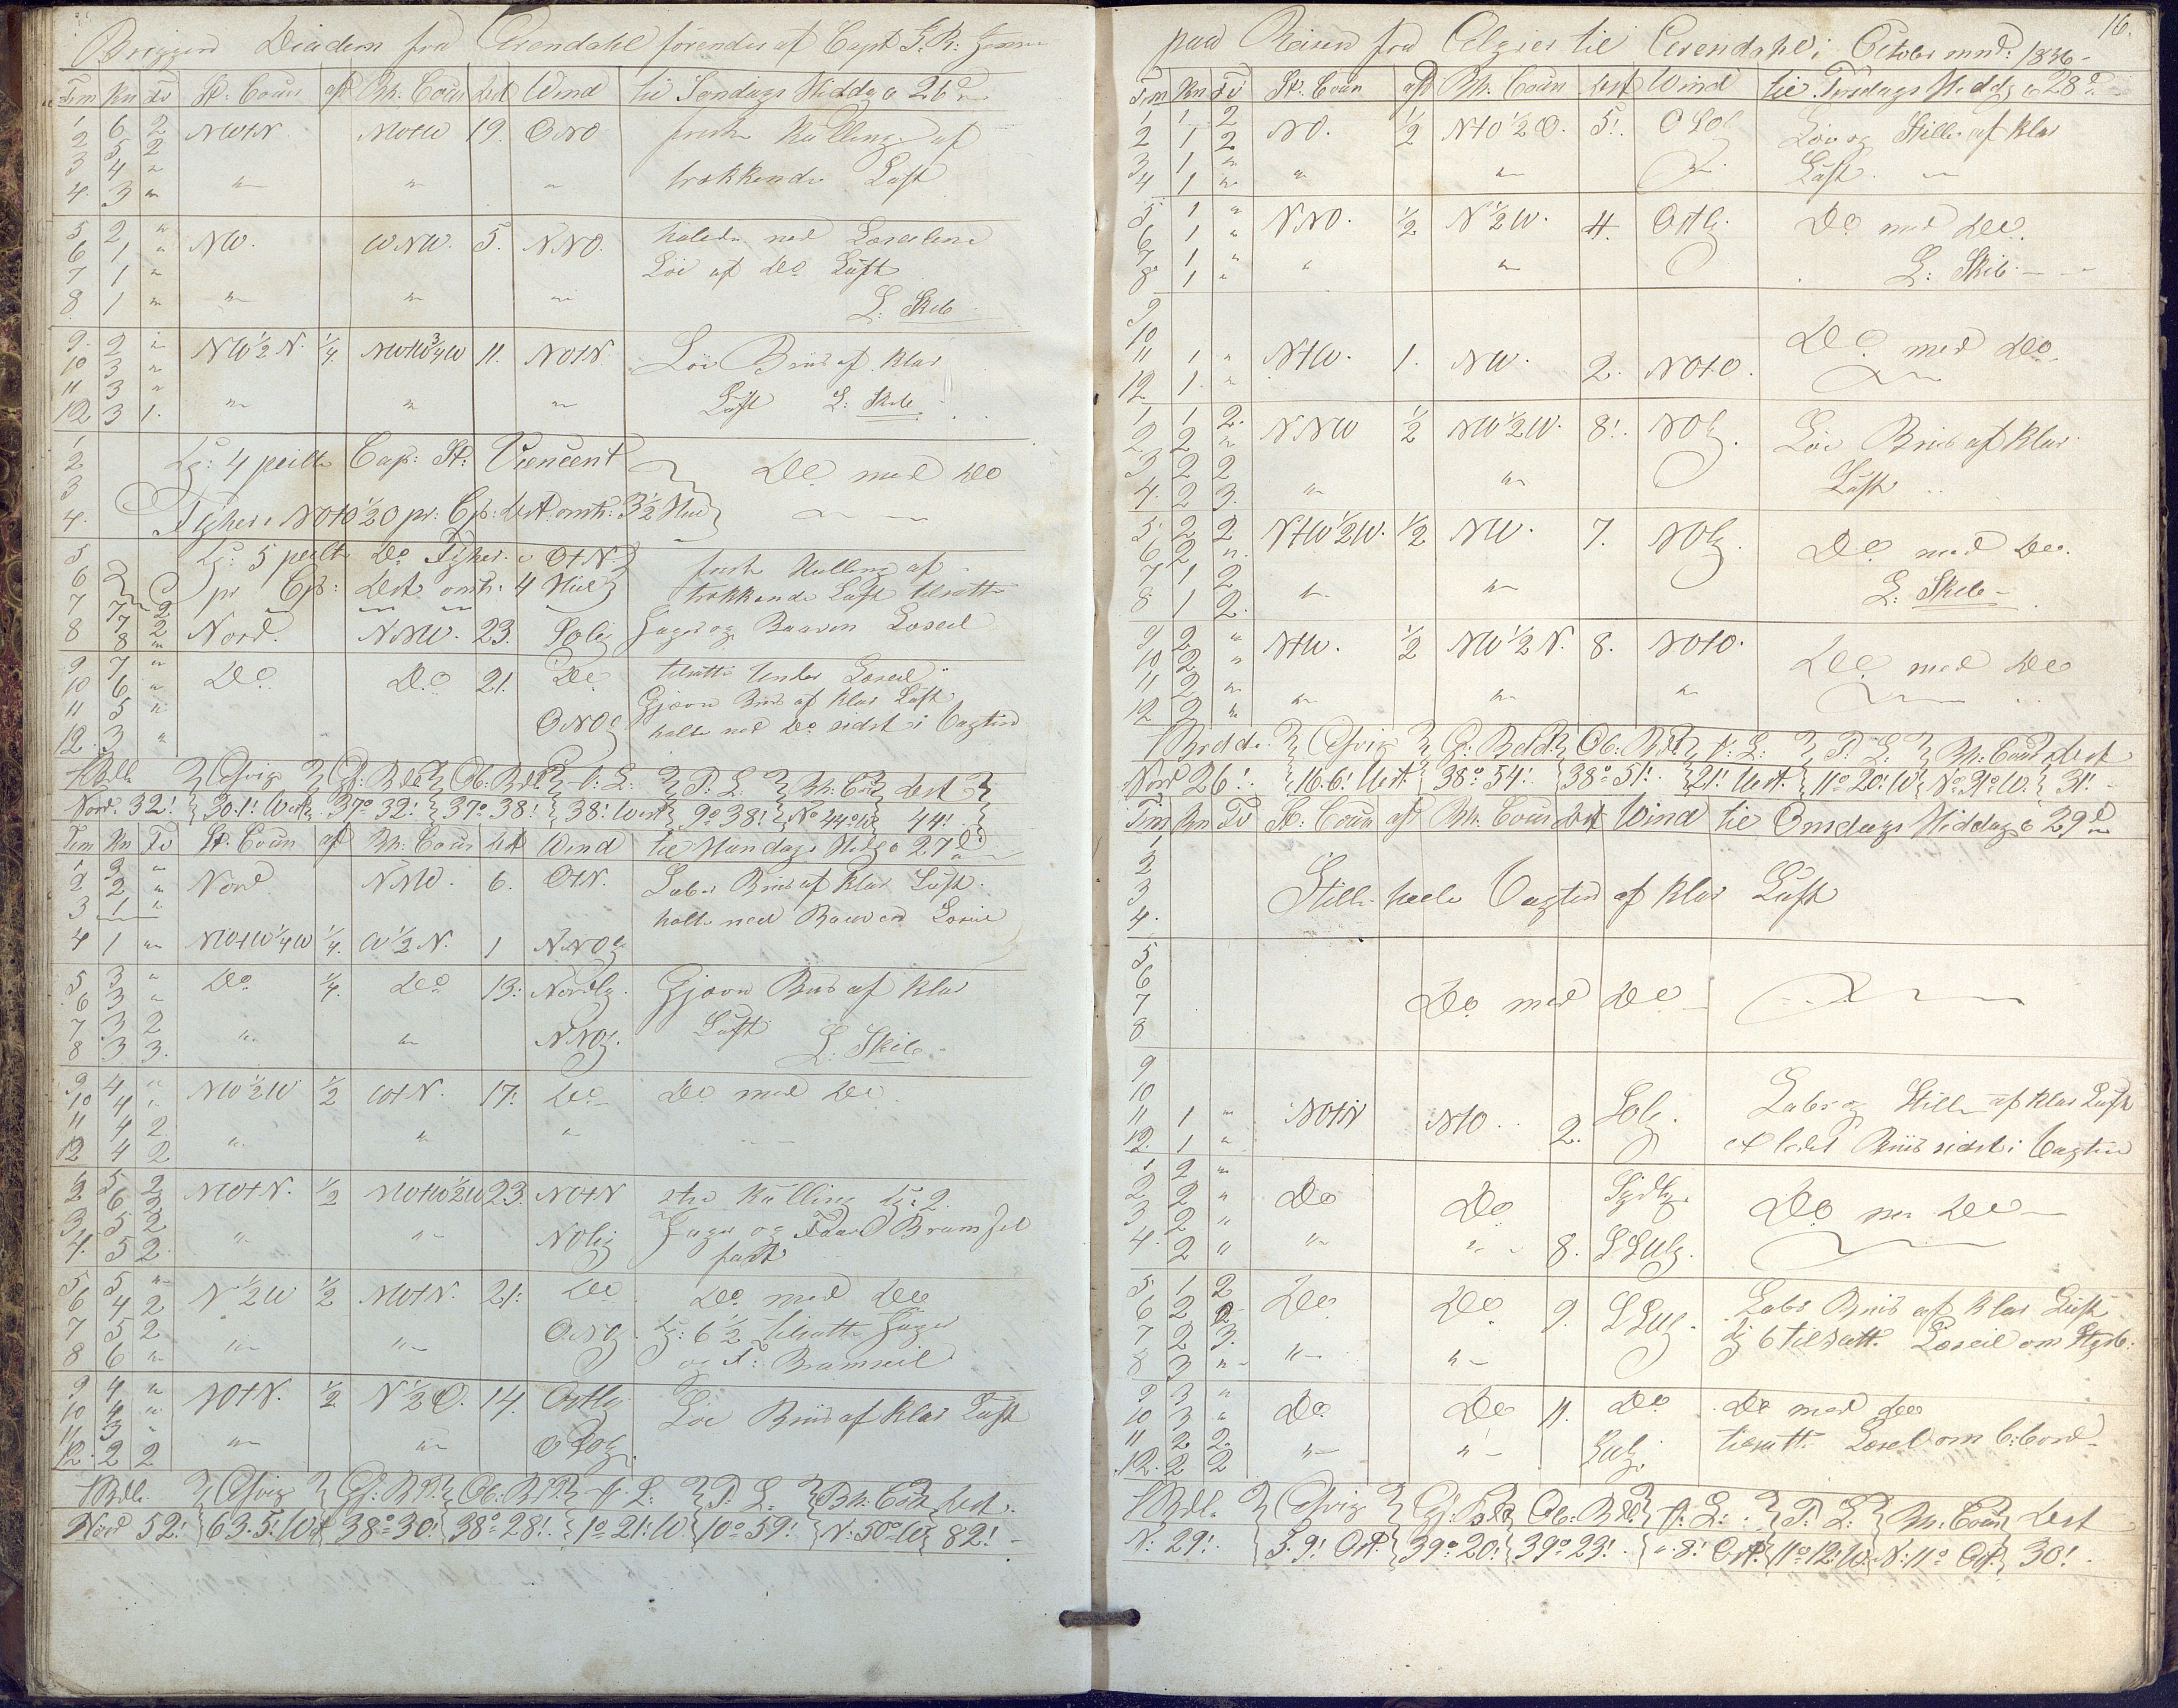 Briggen Diadem fra Arendahl förendes af Capt G. R.
Tim Kn Fv St: Cours afd Bh: Cours dist Wind til Söndags Middag d 26de
1 6 2 NWtN NWtW 19. ONO frisk Kulling af
2 5 2
3 4 " trækkende Luft
4. 3 " " " "
5 2 " NW. WNW. 5. NNO. halede ned Læseilene
6 1 " Löi af do Luft
7 1 "
8 1 " " " " L: Skib
9. 2 " NW 1/2 N. 1/4. NWtW 3/4 W 11. NOtN. Löi Briis af klar
10 3 "
11 3 "
12 3 1. " " " Luft L: Skib
1
2 Kl: 4 peilte Cap: St: Vincent Do med do
3
4. Fyher i NOtO 1/2 O pr: Cp: dist omtr: 3 1/2 Miil
5 Kl: 5 peilte do Fyher i OtN. frisk Kulling af
6 pr Cp: dist omtr. 4 Miil trækkende Luft tilsatte
7 7 2
8 8 " Nord. NNW. 23. Solig Jager og Baaren Læseil
9 7 " Do Do 21. Do tilsatte Under Læseil
10 6 " Gjævn Briis af klar Luft
11 5 "
12. 3 " ONO halte ned do sidst i Vagten
Brdde Afvig Gj: Brd Ob: Brd f: L: P: L: Bh: Cours dist
Nord. 32! 30.1! West 37° 32! 37° 38! 38! West 9° 38! N° 44° W 44!
Tim Kn Fv St: Cours afd Bh: Cours dist Wind til Mandags Middag d 27de
1 2 " Nord NNW. 6. OtN. Laber Briis af klar Luft
2 2 "
3 1 " halte ned Baaren Læseil
4 1 " NWtW 1/4 W 1/4. W 1/2 N. 1 NNO
5 3 " Do 1/4. do 13: Nordlg. Gjævn Briis af klar
6 3 "
7 3 2 Luft
8 3 3. " " NNO. L: Skib
9 4 " NW 1/2 W 1/2 WtN. 17. do Do med do
10 4 "
11 4 2
12 4 2 " " "
1 5 2 NWtN. 1/2 NWtW 1/2 W 23. NOtN stiv Kulling Kl: 2.
2 6 2
3 5 2 " " NOlig Jager og For Bramseil
4. 5 2 fast
5 5 " N 1/2 W 1/2 NWtN. 21: do Do med do
6 4 2
7 5 2 " " ONO. Kl: 6 1/2 tilsatte Jager
8 6 " og F: Bramseil
9 4 " NOtN. 1/2 N 1/2 O. 14. Ostlg Löi Briis af klar Luft
10 4 "
11 3 "
12. 2 2 " " OSO.
Brdde Afvig Gj: Brd. Ob: Brd. f: L: P: L: Bh: Cours dist.
Nord 52! 63.5! West 38° 30! 38° 28! 1° 21! W. 10° 59! N: 50° W 82!
16.
paa Reisen fra Algier til Arendahl i October mnd: 1836
Tim Kn Fv St. Cours afd Bh. Cours dist Wind til Tirsdags Middag d 28de
1 1 2 NO. 1/2 NtO 1/2 O. 5!. OSO Löi og Stille af klar
2 1 2
3 1 " Luft
4 1 " " "
5 1 " NNO. 1/2 N 1/2 W. 4. Ostlg. Do med do.
6 1 "
7 1 "
8 1 " " " L: Skib
9
10 Do med do
11 1 " NtW. 1. NW. 2. NOtO.
12 1. "
1 1 2. NNW 1/2 NW 1/2 W. 8!. NOlg. Löi Briis af klar
2 2 "
3 2 2 Luft
4. 2 3. " "
5. 2 2 NtW 1/2 W. 1/2 NW. 7. NOlg. Do med do.
6 2 "
7 1 2 L: Skib
8 1 2. " "
9 2 " NtW. 1/2 NW 1/2 N. 8. NOtO. Do med do
10 2 "
11 2 "
12 2 " " " "
Bredde. Afvig Gj: Brdd. Ob: Brd f: L: P: L: Bh: Cours dist
Nord 26!. 16.6! West. 38° 54! 38° 51! 21! West. 11° 20! W N° 31° W. 31!
Tim Kn Fv St: Cours afd Bh. Cours dist Wind til Onsdags Middags d 29de
1
2
3 Stille heele Vagten af klar Luft
4.
5
6
7 Do med do
8
9
10 Solg. Laber og Stille af klar Luft
11 1 " NOtN NtO 2.
12. 1 " Briis sidst i Vagten
1 2 " Do Do Sydlg. Do med do
2 2 "
3 2 "
4. 2 " " " 8. SSWlg.
5 1 2 Do Do 9. SSWlg. Laber Briis af klar Luft
6 2 2
7 2 3. Kl 6 tilsatt. Læseil om Styrb:
8 3 " " "
9 3 " Do Do 11. Do Do med do
10 3 "
11 2 2. " " tilsatt. Læseil om B:bord
12. 2 2
Brdd. Afvig Gj: Brd Ob: Brd. f: L: P: L: Bh. Cours dist
N: 29!. 5.9! Ost. 39° 20! 39° 23! 8! Ost. 11° 12! W. N: 11° Ost. 30!